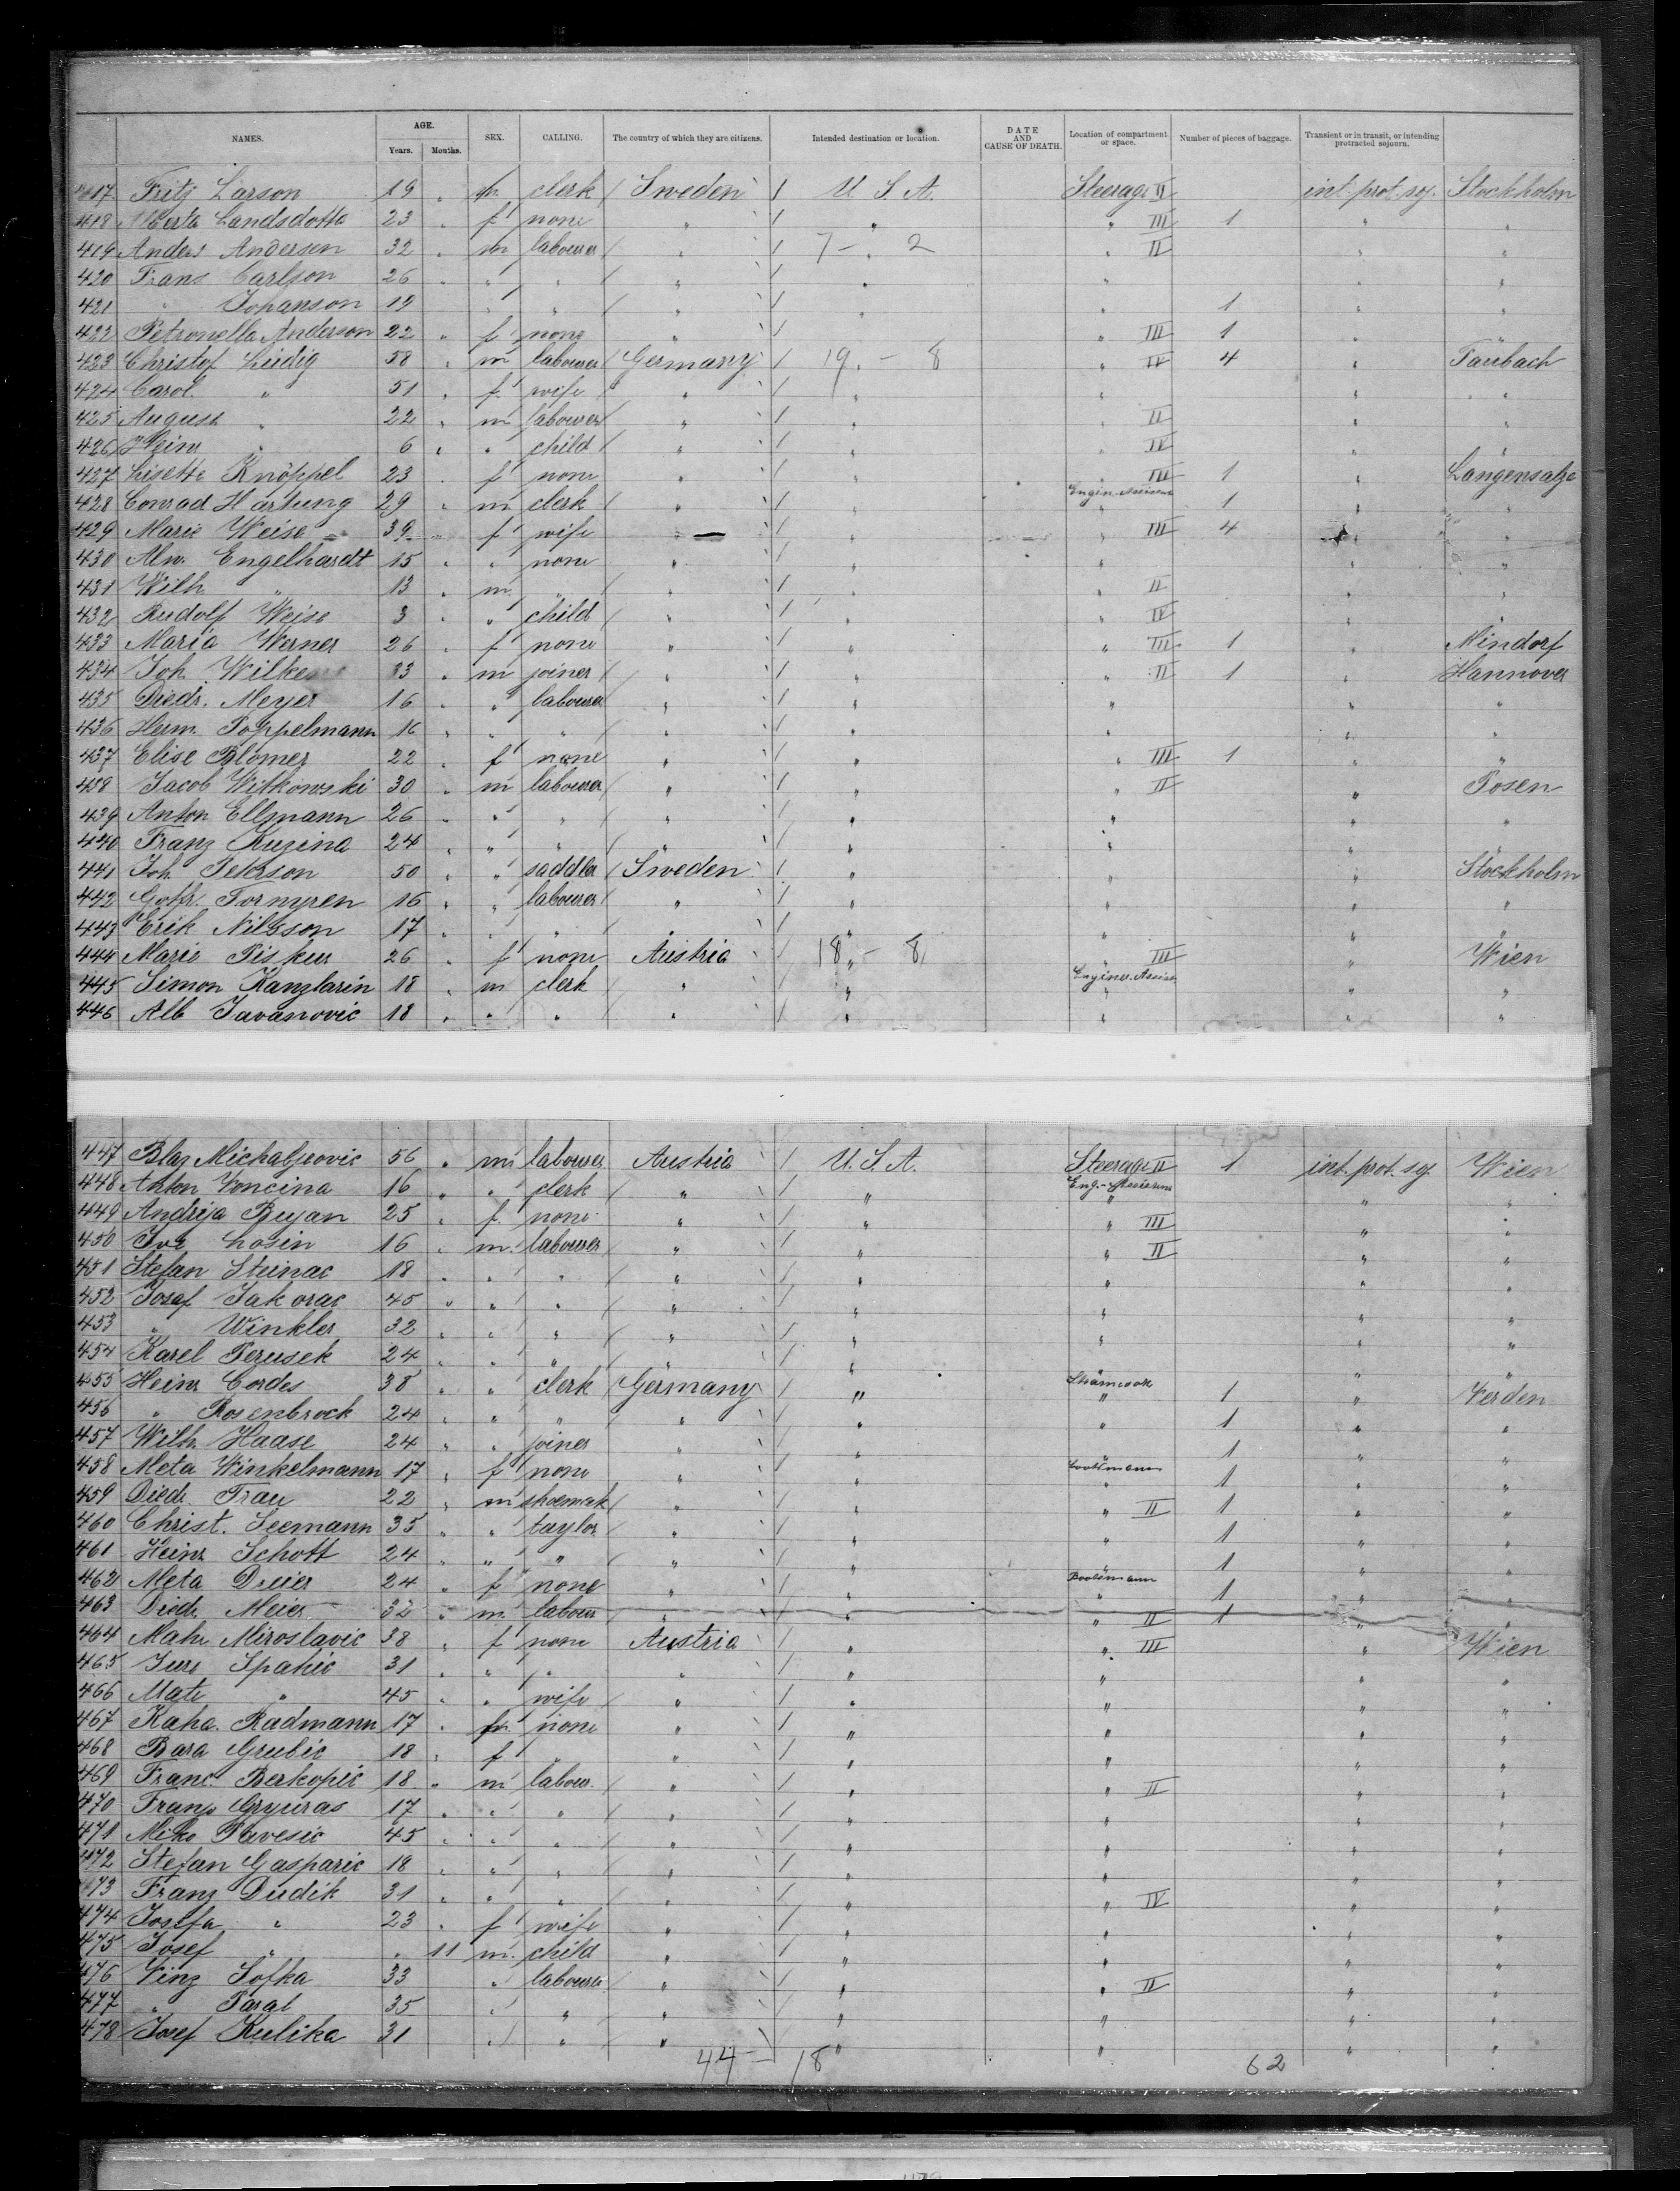 NAMES. AGE. Years. Months. SEX. CALLING. The country of which they are citizens. Intended destination or location. DATE AND CAUSE OF DEATH. Location of compartment or space. Number of pieces of baggage. Transient or in transit, or intending protracted sojourn.
417 Fritz Larson 19 " m clerk Sweden U. S. A. Steerage II int. prot. soj. Stockholm
418 Landsdotta 23 " f none " " " III 1 " "
419 Anders Andersen 32 " m labourer " 7 - 2 " II " "
420 Frans Carlson 26 " " " " " " " "
421 " Johanson 19 " " " " " 1 " "
422 Petronella Anderson 22 " f none " " " III 1 " "
423 Christof Lüdig 58 " m labourer Germany 19 - 8 " IV 4 " Taubach
424 Carol. " 51 " f wife " " " " "
425 August " 22 " m labourer " " " II " "
426 Hein " 6 " " child " " " IV " "
427 Lisette Knöppel 23 " f none " " " III 1 " Langensalza
428 Conrad Hartung 29 " m clerk " " " 1 " "
429 Marie Weise 39 " f wife " " " III 4 " "
430 Alw. Engelhardt 15 " " none " " " " "
431 Wilh " 13 " m " " " " II " "
432 Rudolf Weise 3 " " child " " " IV " "
433 Maria Werner 26 " f none " " " III 1 " Mindorf
434 Joh. Wilke 33 " m joiner " " " II 1 " Hannover
435 Diedr. Meyer 16 " " labourer " " " " "
436 Herm. Poppelmann 16 " " " " " " " "
437 Elise Blömer 22 " f none " " " III 1 " "
438 Jacob Witkowski 30 " m labourer " " " II " Posen
439 Anton Ellmann 26 " " " " " " " "
440 Franz Kuzina 24 " " " " " " " "
441 Joh. Peterson 50 " " saddler Sweden " " " Stockholm
442 Gothr. Fornyren 16 " " labourer " " " " "
443 Erik Nilsson 17 " " " " " " " "
444 Marie Piskur 26 " f none Austria 18 - 8 " III " Wien
445 Simon Kanzlarin 18 " m clerk " " " " "
446 Alb Javanovic 18 " " " " " " " "
447 Blaz Michaljevic 56 " m labourer Austria U. S. A. Steerage II 1 int. prot. soj. Wien
448 Anton Voncina 16 " " clerk " " " " "
449 Andrija Buyan 25 " f none " " " III " "
450 Ive Losin 16 " m labourer " " " II " "
451 Stefan Steinac 18 " " " " " " " "
452 Josef Jakorac 45 " " " " " " " "
453 " Winkler 32 " " " " " " " "
454 Karel Perusek 24 " " " " " " " "
455 Heinr Cordes 38 " " clerk Germany " " 1 " Verden
456 " Rosenbrock 24 " " " " " " 1 " "
457 Wilh Haase 24 " " joiner " " 1 " "
458 Meta Winkelmann 17 " f none " " Bootsmann " 1 " "
459 Diedr. Trau 22 " m shoemak " " " II 1 " "
460 Christ. Seemann 35 " " taylor " " " 1 " "
461 Heinr Schott 24 " " " " " 1 " "
462 Meta Dreier 24 " f none " " Bootsmann " 1 " "
463 Diedr. Meier 32 " m labour " " " II 1 " "
464 Mahe Miroslavic 38 " f none Austria " " III " Wien
465 Juro Spahic 31 " " " " " " " "
466 Mate " 45 " " wife " " " " "
467 Kaha. Radmann 17 " none " " " " "
468 Bara Grubic 18 " f " " " " " "
469 Franc. Berkopic 18 " m labour. " " " II " "
470 Franjo Gryuras 17 " " " " " " " "
471 Miko Pavesic 45 " " " " " " " "
472 Stefan Gasparic 18 " " " " " " " "
473 Franz Dudik 31 " " " " " " IV " "
474 Josefa " 23 " f wife " " " " "
475 Josef " " 11 m. child " " " " "
476 Vinz Sofka 33 " labourer " " " II " "
477 " Paral 35 " " " " " " "
478 Josef Kulika 31 " " " " " " "
44 - 18 62